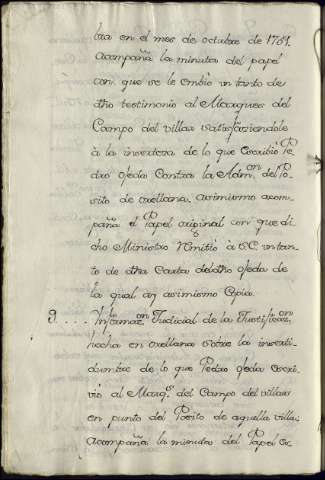 bra en el mes de octubre de 1761.
Acompaña la minuta del papel
con que se le embio un tanto de
dho testimonio al Marques del
Campo del villar satisfaziendole
à la incerteza de lo que escribiò Pe
dro ojeda Contra la Admon del Po
sito de orellana. asimismo acom
paña el Papel original con que di
cho Ministro rémitiò à SE un tan
to de dha Carta del dho ojeda de
la qual ay asimismo Copia.
9.... Informazon Judicial de la Justificazon
hecha en orellana sobre la incerti
dumbre de lo que Pedro ojeda escri
viò al Marqs del Campo del villar
en punto del Posito de aquella villa
Acompaña la minuta del Papel